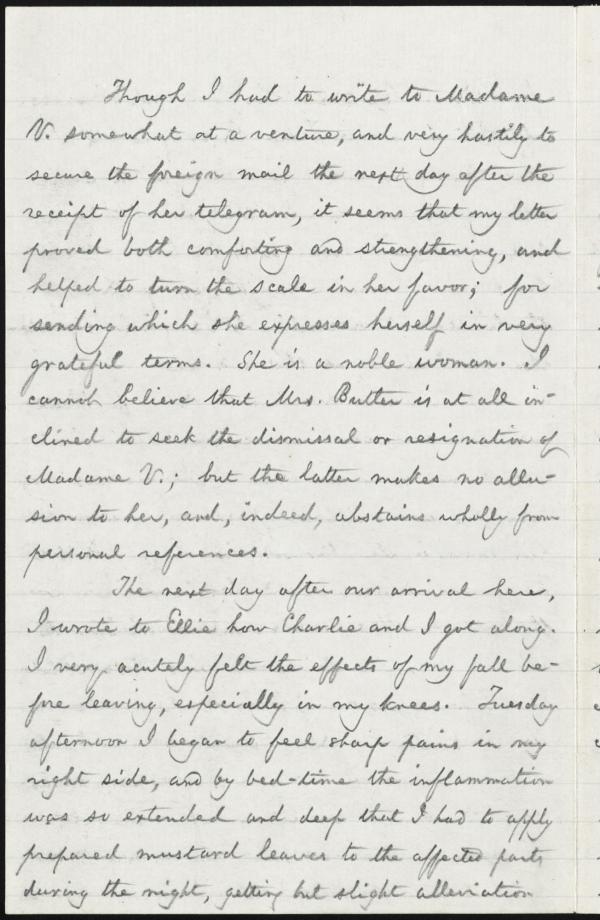 Though I had to write to Madame
V. somewhat at a venture, and very hastily to
secure the foreign mail the next day after the
receipt of her telegram, it seems that my letter
proved both comforting and strengthening, and
helped to turn the scale in her favor; for
sending which she expresses herself in very
grateful terms. She is a noble woman. I
cannot believe that Mrs. Butler is at all in-
clined to seek the dismissal or resignation of
Madame V.; but the latter makes no allu-
sion to her, and, indeed, abstains wholly from
personal references.
The next day after our arrival here,
I wrote to Ellie how Charlie and I got along.
I very acutely felt the effects of my fall be-
fore leaving, especially in my knees. Tuesday
afternoon I began to feel sharp pains in my
right side, and by bed-time the inflammation
was so extended and deep that I had to apply
prepared mustard leaves to the affected parts
during the night, getting but slight alleviation